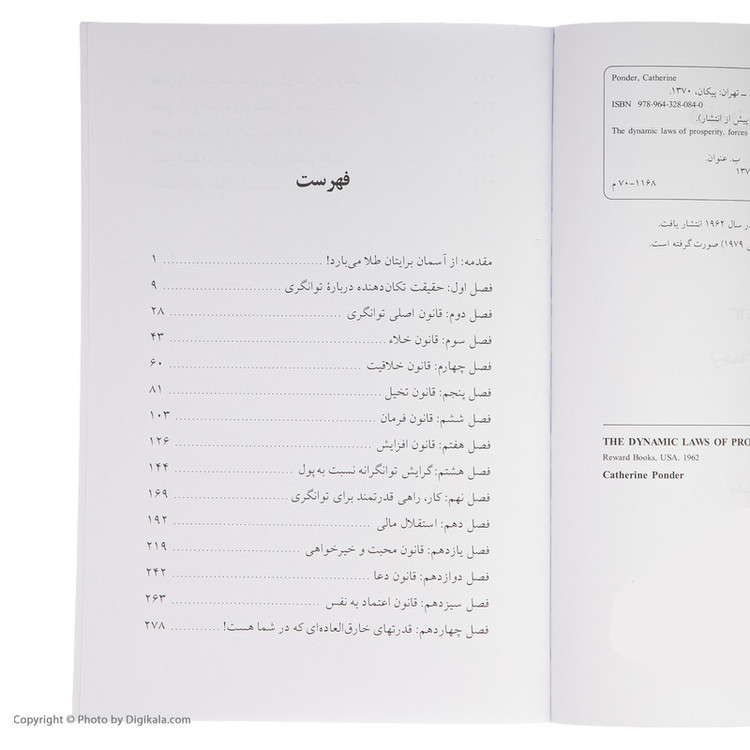 فهرست
مقدمه: از آسمان برایتان طلا می‌بارد! ........ ۱
فصل اول: حقیقت تکان‌دهنده دربارهٔ توانگری ........ ۹
فصل دوم: قانون اصلی توانگری ........ ۲۸
فصل سوم: قانون خلاء ........ ۴۳
فصل چهارم: قانون خلاقیت ........ ۶۰
فصل پنجم: قانون تخیل ........ ۸۱
فصل ششم: قانون فرمان ........ ۱۰۳
فصل هفتم: قانون افزایش ........ ۱۲۶
فصل هشتم: گرایش توانگرانه نسبت به پول ........ ۱۴۴
فصل نهم: کار، راهی قدرتمند برای توانگری ........ ۱۶۹
فصل دهم: استقلال مالی ........ ۱۹۲
فصل یازدهم: قانون محبت و خیرخواهی ........ ۲۱۹
فصل دوازدهم: قانون دعا ........ ۲۴۲
فصل سیزدهم: قانون اعتماد به نفس ........ ۲۶۳
فصل چهاردهم: قدرتهای خارق‌العاده‌ای که در شما هست! ........ ۲۷۸
Ponder, Catherine
ـ تهران: پیکان، ۱۳۷۰.
ISBN 978-964-328-084-0
پیش از انتشار).
The dynamic laws of prosperity. forces
ب. عنوان.
۱۳۷
۷۰-۱۱۶۸ م
در سال ۱۹۶۲ انتشار یافت.
۱۹۷۹) صورت گرفته است.
THE DYNAMIC LAWS OF PRO
Reward Books, USA. 1962
Catherine Ponder
Copyright © Photo by Digikala.com